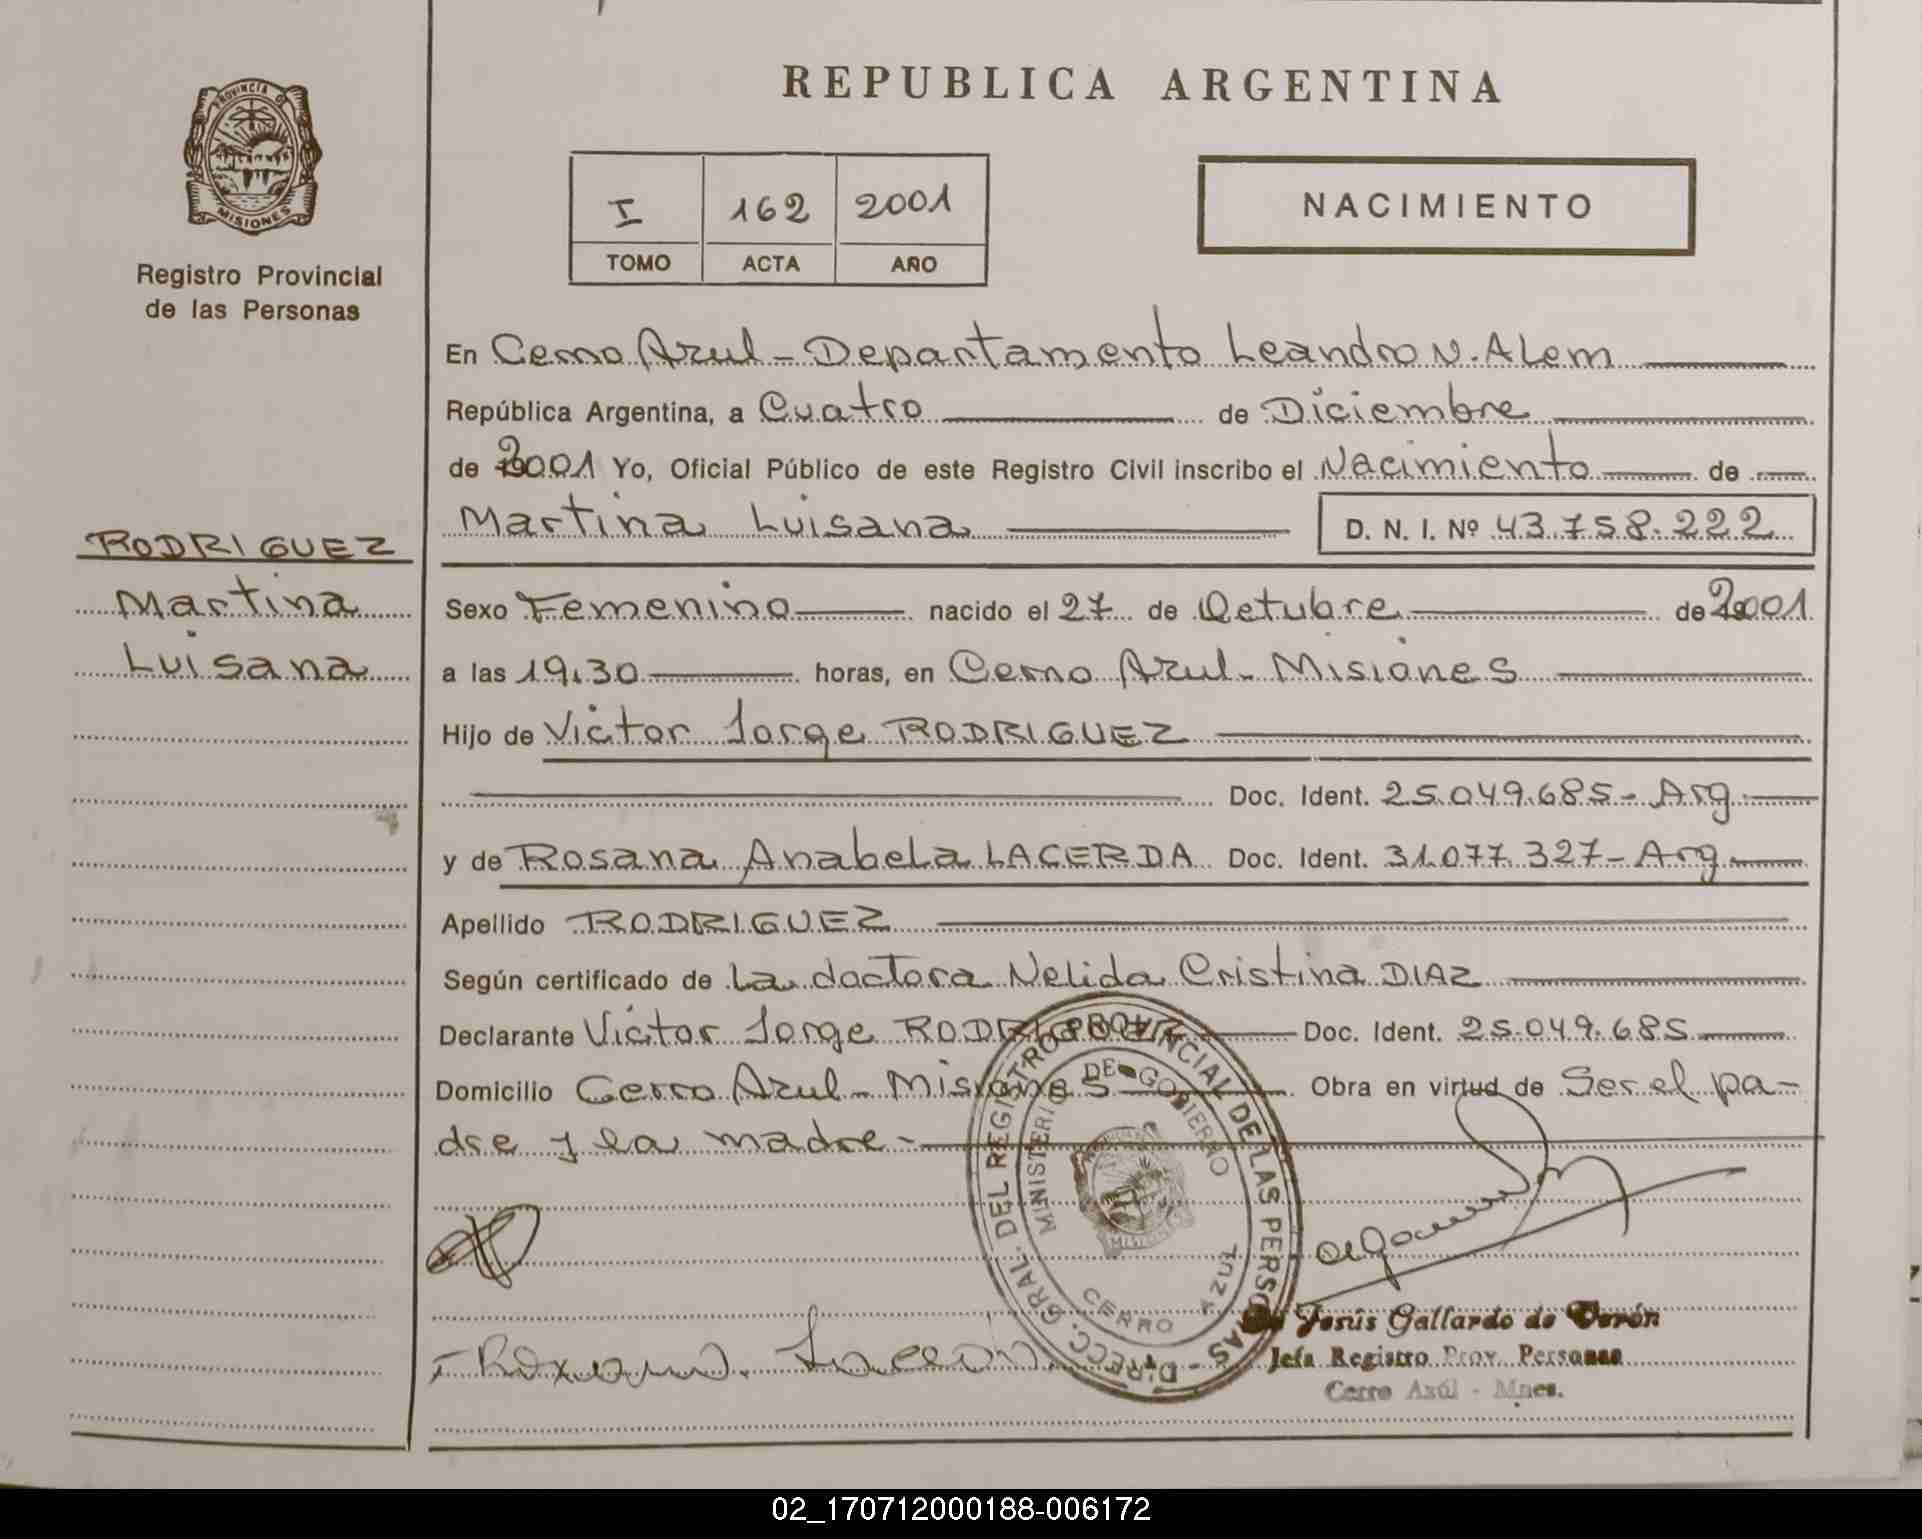 PROVINCIA DE
MISIONES
Registro Provincial
de las Personas
RODRIGUEZ
Martina
Luisana
REPUBLICA ARGENTINA
I 162 2001
TOMO ACTA AÑO
NACIMIENTO
En Cerro Azul - Departamento Leandro N. Alem
República Argentina, a Cuatro de Diciembre
de 2001 Yo, Oficial Público de este Registro Civil inscribo el Nacimiento de
Martina Luisana D. N. I. Nº 43.758.222
Sexo Femenino nacido el 27 de Octubre de 2001
a las 19.30 horas, en Cerro Azul - Misiones
Hijo de Victor Jorge RODRIGUEZ
Doc. Ident. 25.049.685 - Arg
y de Rosana Anabela LACERDA Doc. Ident. 31.077.327 - Arg
Apellido RODRIGUEZ
Según certificado de La doctora Nelida Cristina DIAZ
Declarante Victor Jorge RODRIGUEZ Doc. Ident. 25.049.685
Domicilio Cerro Azul - Misiones Obra en virtud de Ser el pa-
dre y la madre -
DIRECC. GRAL. DEL REGISTRO PROVINCIAL DE LAS PERSONAS -
MINISTERIO DE GOBIERNO
MISIONES
CERRO AZUL
Jesús Gallardo de Verón
Jefa Registro Prov. Personas
Cerro Azúl - Mnes.
02_170712000188-006172